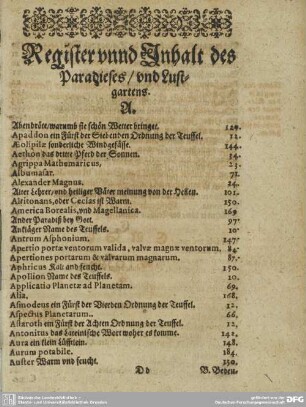 Register vnnd Inhalt des
Paradieses/ vnd Lust-
gartens.
A.
Abendröte/warumb sie schön Wetter bringet. 129.
Apaddon ein Fürst der Siebenden Ordnung der Teuffel. 12.
Æolipilæ sonderliche Windgefässe. 144.
Aethon das dritte Pferd der Sonnen. 14.
Agrippa Mathematicus, 23.
Albumasar. 71.
Alexander Magnus. 24.
Alter Lehrer/vnd heiliger Väter meinung von der Hellen. 101.
Altitonans, oder Cecias ist Warm. 150.
America Borealis, vnd Magellanica. 169
Ander Paradiß bey Gott. 97.
Ankläger Name des Teuffels. 10.
Antrum Asphonium. 147
Apertio portæ ventorum valida, valvæ magnæ ventorum. 84
Apertiones portarum & valvarum magnarum. 87.
Aphricus Kalt vnd feucht. 150.
Apollion Name des Teuffels. 10.
Applicatio Planetæ ad Planetam. 69.
Asia. 168.
Asmodeus ein Fürst der Vierden Ordnung der Teuffel. 12.
Aspectus Planetarum. 66.
Astaroth ein Fürst der Achten Ordnung der Teuffel. 12.
Autonitus das Lateinische Wort woher es komme. 141.
Aura ein klein Lüfftlein. 148.
Aurum potabile. 184.
Auster Warm vnd feucht. 150.
D d B. Beden-